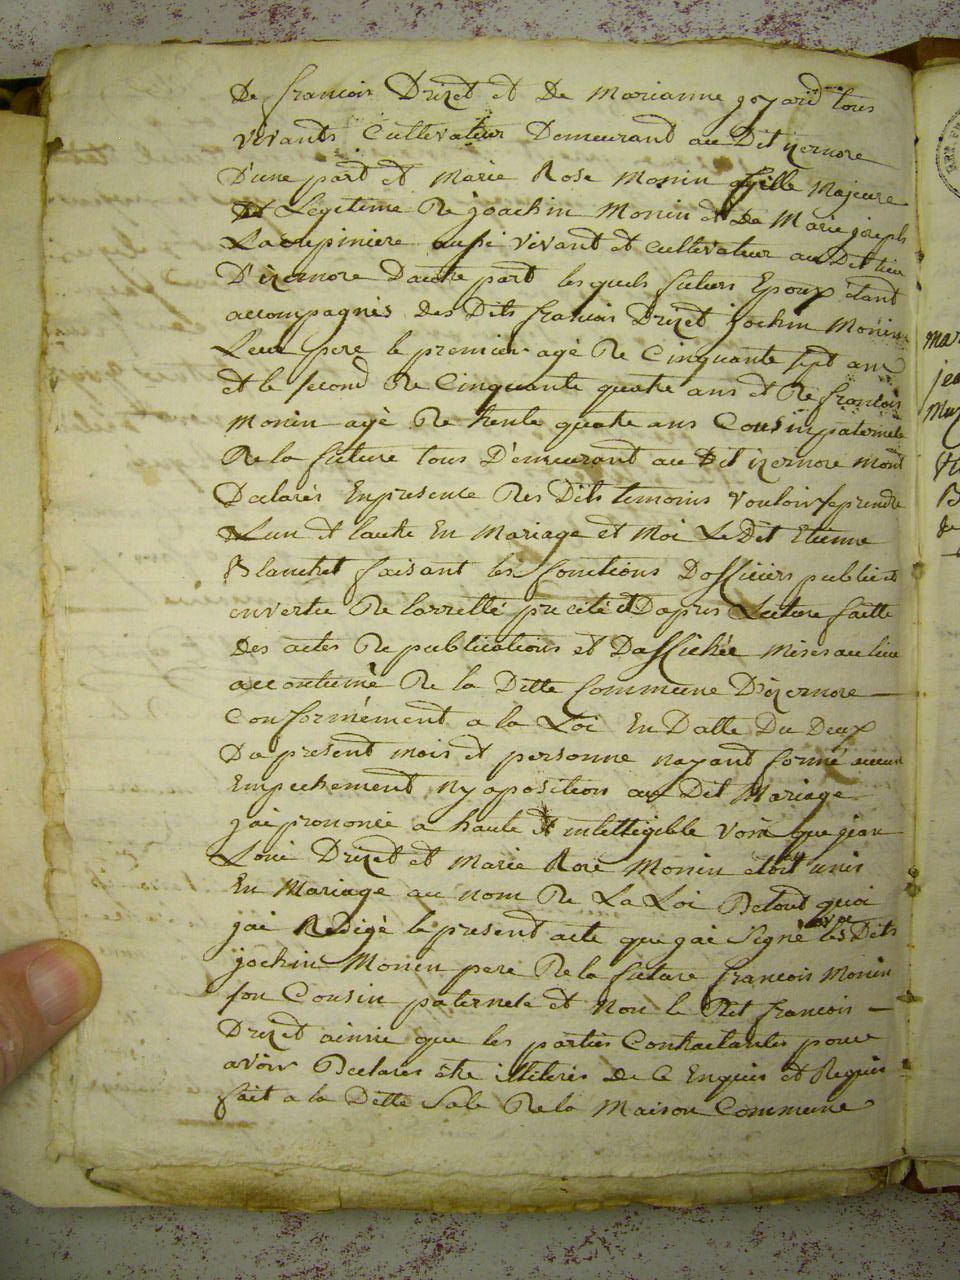 De francois Druet et De Marianne goyard tous
vivants Cultivateur Demeurant au Dit izernore
D'une part et Marie Rose Monin fille Majeure
et Legitime De joachin Monin et de Marie joseph
Lacupiniere aussi vivant et cultivateur au Dit lieu
D'izernore Dautre part lesquels futurs Epoux étant
accompagnés des Dits francois Druet jochin Monin
Leur pere le premier agé De Cinquante sept ans
et le second De Cinquante quatre ans et De francois
Monin agé De trente quatre ans Cousin paternele
De la future tous D'emeurant au Dit izernore mont
Declarés En presence Des Dits temoins vouloir se prendre
Lun et lautre En Mariage et Moi Le Dit Etienne
Blanchet faisant les fonctions Dofficiers publics
en vertu De larretté precité et Dapres Lecture faitte
des actes De publications et Daffichée mises au lieu
accoutumé De la Ditte Commune D'izernore
Conformément a la Loi En Datte Du Deux
Du present mois et personne nayant formé aucun
Empechement ny oposition au Dit Mariage
jai prononcé a haute et intelligible voix que jean
Loui Druet et Marie Rose Monin etoit unis
En Mariage au nom De La Loi De tout quoi
jai Redigé le present acte que jai Signé avec les Dits
jochin Monin pere De la future francois Monin
son Cousin paternele et Non le Dit francois
Druet ainsi que les parties Contractantes pour
avoir Declarés être illiterés de Ce Enquis et Requis
fait a la Ditte Sale De la Maison Commune